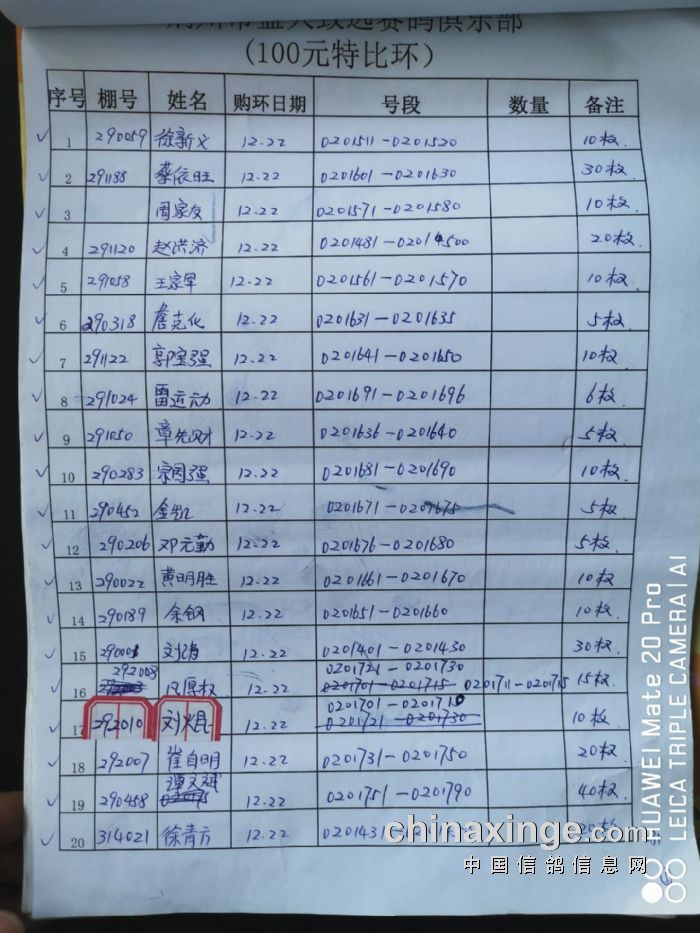 赛鸽俱乐部
(100元特比环)
序号 棚号 姓名 购环日期 号段 数量 备注
1 290059 徐新义 12.22 0201511-0201520 10枚
2 291188 蔡依旺 12.22 0201601-0201630 30枚
3 周家友 12.22 0201571-0201580 10枚
4 291120 赵洪济 12.22 0201481-0201500 20枚
5 291058 王家军 12.22 0201561-0201570 10枚
6 290318 詹克化 12.22 0201631-0201635 5枚
7 291122 郭宝强 12.22 0201641-0201650 10枚
8 291024 雷运动 12.22 0201691-0201696 6枚
9 291050 章先财 12.22 0201636-0201640 5枚
10 290283 宗国强 12.22 0201681-0201690 10枚
11 290452 金凯 12.22 0201671-0201675 5枚
12 290206 邓元勤 12.22 0201676-0201680 5枚
13 290022 黄明胜 12.22 0201661-0201670 10枚
14 290189 余钢 12.22 0201651-0201660 10枚
15 290001 刘涛 12.22 0201401-0201430 30枚
292008 0201721-0201730
16 12.22 0201701-0201715 0201711-0201715 15枚
0201701-0201710
17 292010 刘火昆 12.22 0201721-0201730 10枚
18 292007 崔自明 12.22 0201731-0201750 20枚
19 290458 谭文斌 12.22 0201751-0201790 40枚
20 314021 徐青方 12.22 020143
chinaxinge.com
中国信鸽信息网
HUAWEI Mate 20 Pro
LEICA TRIPLE CAMERA | AI